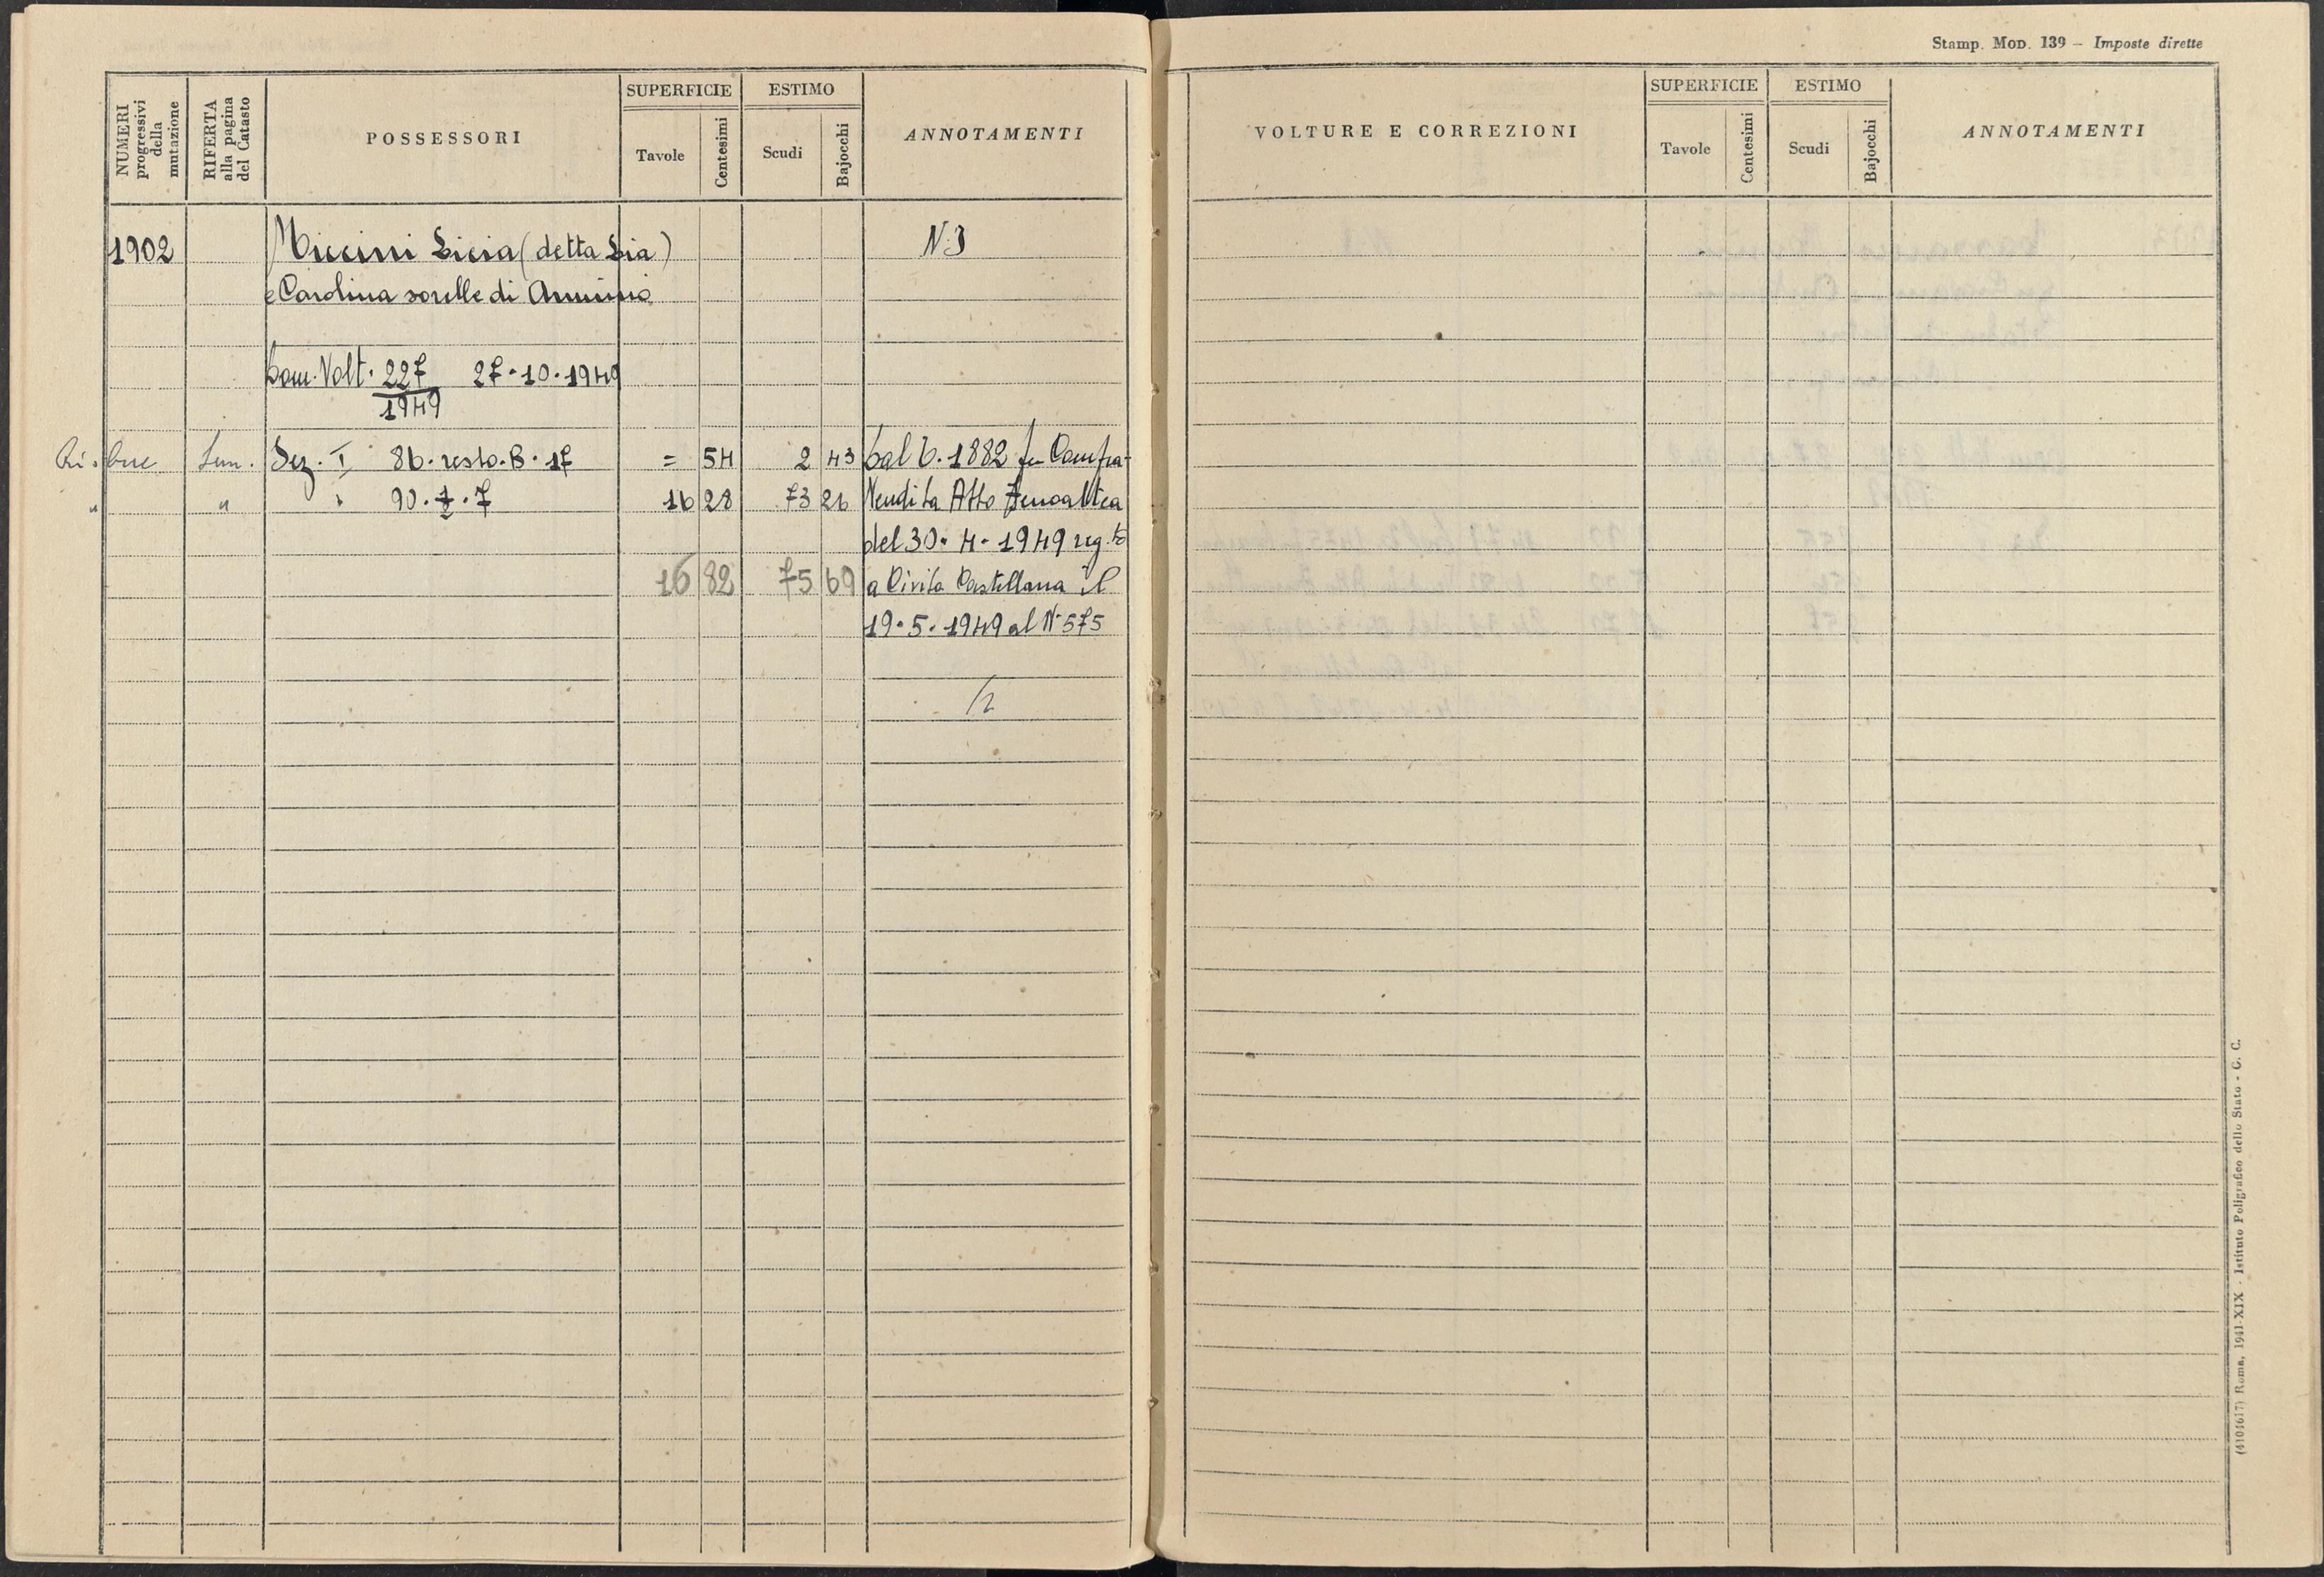 Stamp. Mod. 139 – Imposte dirette
NUMERI progressivi della mutazione
RIFERTA alla pagina del Catasto
POSSESSORI
SUPERFICIE
Tavole
Centesimi
ESTIMO
Scudi
Bajocchi
ANNOTAMENTI
VOLTURE E CORREZIONI
SUPERFICIE
Tavole
Centesimi
ESTIMO
Scudi
Bajocchi
ANNOTAMENTI
1902 Miccini Licia (detta Lia) N. 3
e Carolina sorelle di Arminio
Dom. Volt. 227 27.10.1949
1949
Sez. I 86. resto. B. 17 = 54 2 43 Dal 6. 1882 per Compra
" " 90. 7 16 28 73 26 Vendita Atto Fenoaltea
del 30. 4. 1949 reg.to
16 82 75 69 a Civita Castellana il
19. 5. 1949 al N. 575
(4104617) Roma, 1941-XIX - Istituto Poligrafico dello Stato - G. C.